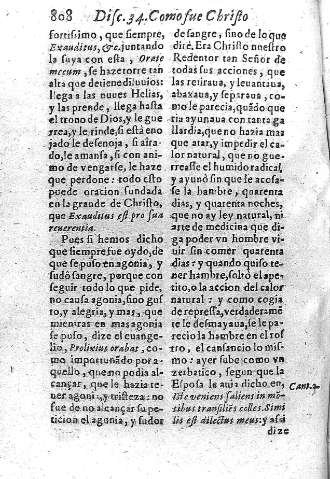 808 Disc. 34. Como fue Christo
fortissimo, que siempre,
Exauditus, &c. juntando
la suya con esta, Orate
mecum, se haze torre tan
alta que detiene diluuios:
llega a las nuues Helias,
y las prende, llega hasta
el trono de Dios, y le gue
rrea, y le rinde, si està eno
jado le desenoja, si aira-
do, le amansa, si con ani-
mo de vengarse, le haze
que perdone: todo esto
puede oracion fundada
en la grande de Christo,
que Exauditus est pro sua
reuerentia.
Pues si hemos dicho
que siempre fue oydo, de
que se puso en agonia, y
sudò sangre, porque con
seguir todo lo que pide,
no causa agonia, sino gus
to, y alegria, y mas, que
mientras en mas agonia
se puso, dize el euange-
lio, Prolixius orabat, co-
mo importunādo por a-
quello, que no podia al-
cançar, que le hazia te-
ner agonia, y tristeza: no
fue de no alcançar su pe-
ticion el agonia, y sudor
de sangre, sino de lo que
dirè. Era Christo nuestro
Redentor tan Señor de
todas sus acciones, que
las retiraua, y leuantaua,
abaxaua, y separaua, co-
mo le parecia, quādo que
ria ayunaua con tanta ga
llardia, que no hazia mas
que atar, y impedir el ca-
lor natural, que no gue-
rreasse el humido radical,
y ayunò sin que le acosas-
se la hambre, quarenta
dias, y quarenta noches,
que no ay ley natural, ni
arte de medicina que di-
ga poder vn hombre vi-
uir sin comer quarenta
dias: y quando quiso te-
ner hambre, soltò el ape-
tito, o la accion del calor
natural: y como cogia
de represa, verdaderamē
te le desmayaua, se le pa-
recio la hambre en el ros
tro, el cansancio lo mis-
mo: ayer sube como vn
zerbatico, segun que la
Esposa le auia dicho en,
Iste veniens saliens in mō-
tibus transiliēs colles. Simi
lis est dilectus meus: y assi
Cant. 2.
dize